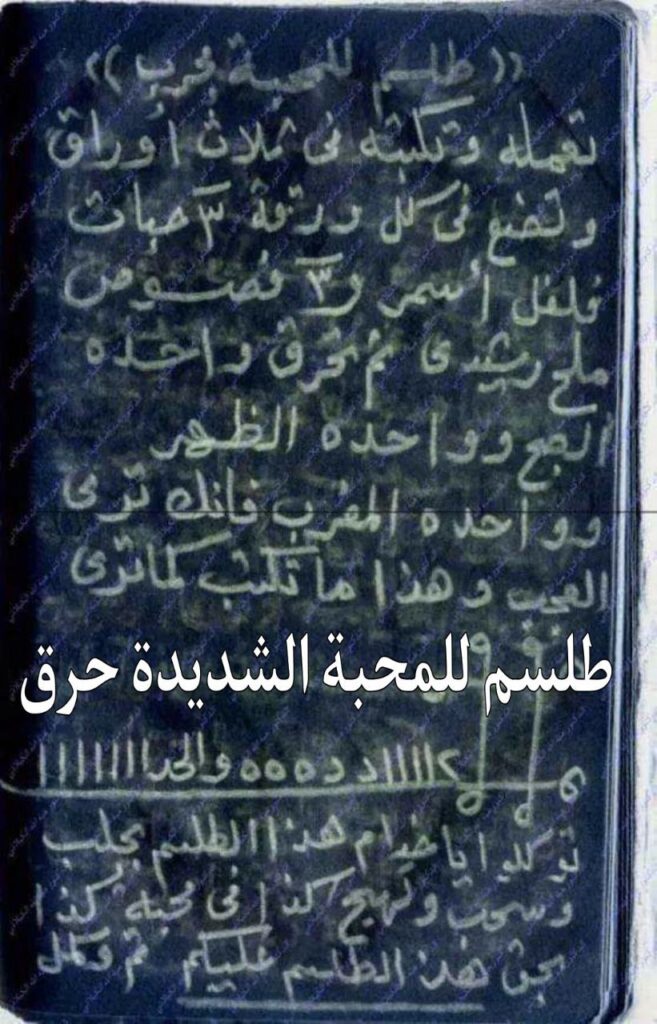 (( طلسم للمحبة مجرب ))
تعمله وتكتبه فى ثلاث أوراق
وتضع فى كل ورقة ٣ حبات
فلفل أسمر و٣ فصوص
ملح رشيدى ثم تحرق واحده
الصبح وواحده الظهر
وواحده المغرب فانك ترى
العجب وهذا ما تكتب كما ترى
طلسم للمحبة الشديدة حرق
توكلوا يا خدام هذا الطلسم بجلب
وسحب وتهيج كذا فى محبة كذا
بحق هذا الطلسم عليكم تم وكمل